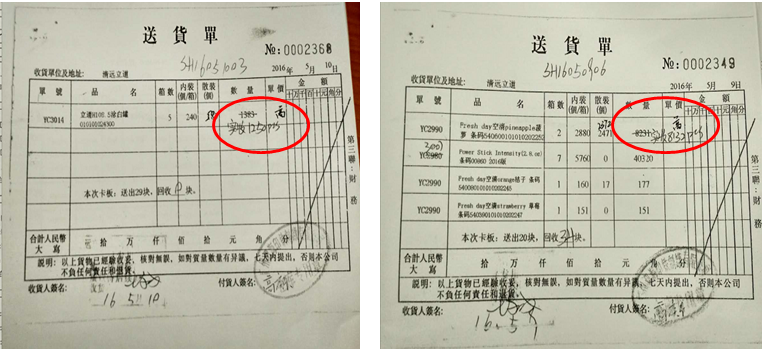 送貨單
№:0002368
SH16051003
收貨單位及地址: 清远立道
2016年 5月 10日
單號 品名 箱數 内装(個/箱) 散装(個) 數量 單價 金額
十万千百十元角分
YC3014 立道H108.5涂白罐 5 240 1383
010100024300
实收1250pcs
本次卡板：送出29块，回收0块。
合計人民幣大寫 拾 万 仟 佰 拾 元 角 分
説明：以上貨物已經驗收妥，核對無誤，如對質量數量有异議，七天内提出，否則本公司不負任何責任和退貨。
收貨人簽名: 付貨人簽名:
16.5.10
第三聯:財務
送貨單
№:0002349
SH16050906
收貨單位及地址: 清远立道
2016年 5月 9日
單號 品名 箱數 内装(個/箱) 散装(個) 數量 單價 金額
十万千百十元角分
YC2990 Fresh day空满pineapple菠萝 条码 2 2880 2471 8231
实收8132pcs
YC2980 Power Stick Intensity(2.8.oz) 条码00860 2016版 7 5760 0 40320
YC2990 Fresh day空满orange桔子 条码 1 160 17 177
5400801010102245
YC2990 Fresh day空满strawberry 草莓 1 151 0 151
本次卡板：送出20块，回收块。
合計人民幣大寫 拾 万 仟 佰 拾 元 角 分
説明：以上貨物已經驗收妥，核對無誤，如對質量數量有异議，七天内提出，否則本公司不負任何責任和退貨。
收貨人簽名: 付貨人簽名:
16.5.
第三聯:財務